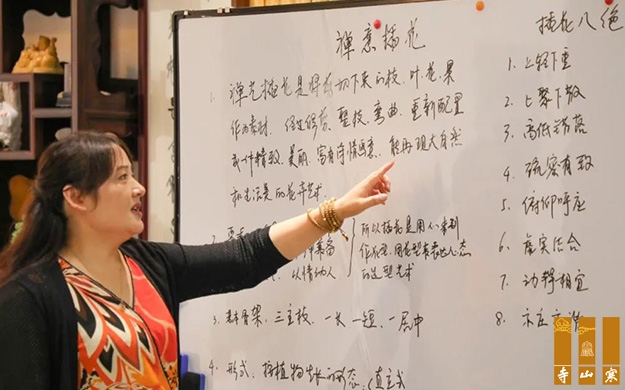 禅意插花
1. 禅意插花是将剪切下来的枝、叶、花、果
作为素材、经过修剪、整枝、弯曲、重新配置
成一件精致、美丽、富有诗情画意、能再现大自然
和生活美的花卉艺术
2.
以情纳人
所以插花是用人来到
的造型艺术
3. 基本骨架，三主枝，一长一短，一居中
4. 形式：按植物生长的形态（直立式
插花八绝
1. 上轻下重
2. 上聚下散
3. 高低错落
4. 疏密有致
5. 俯仰呼应
6. 虚实结合
7. 动静相宜
8.
寒山寺